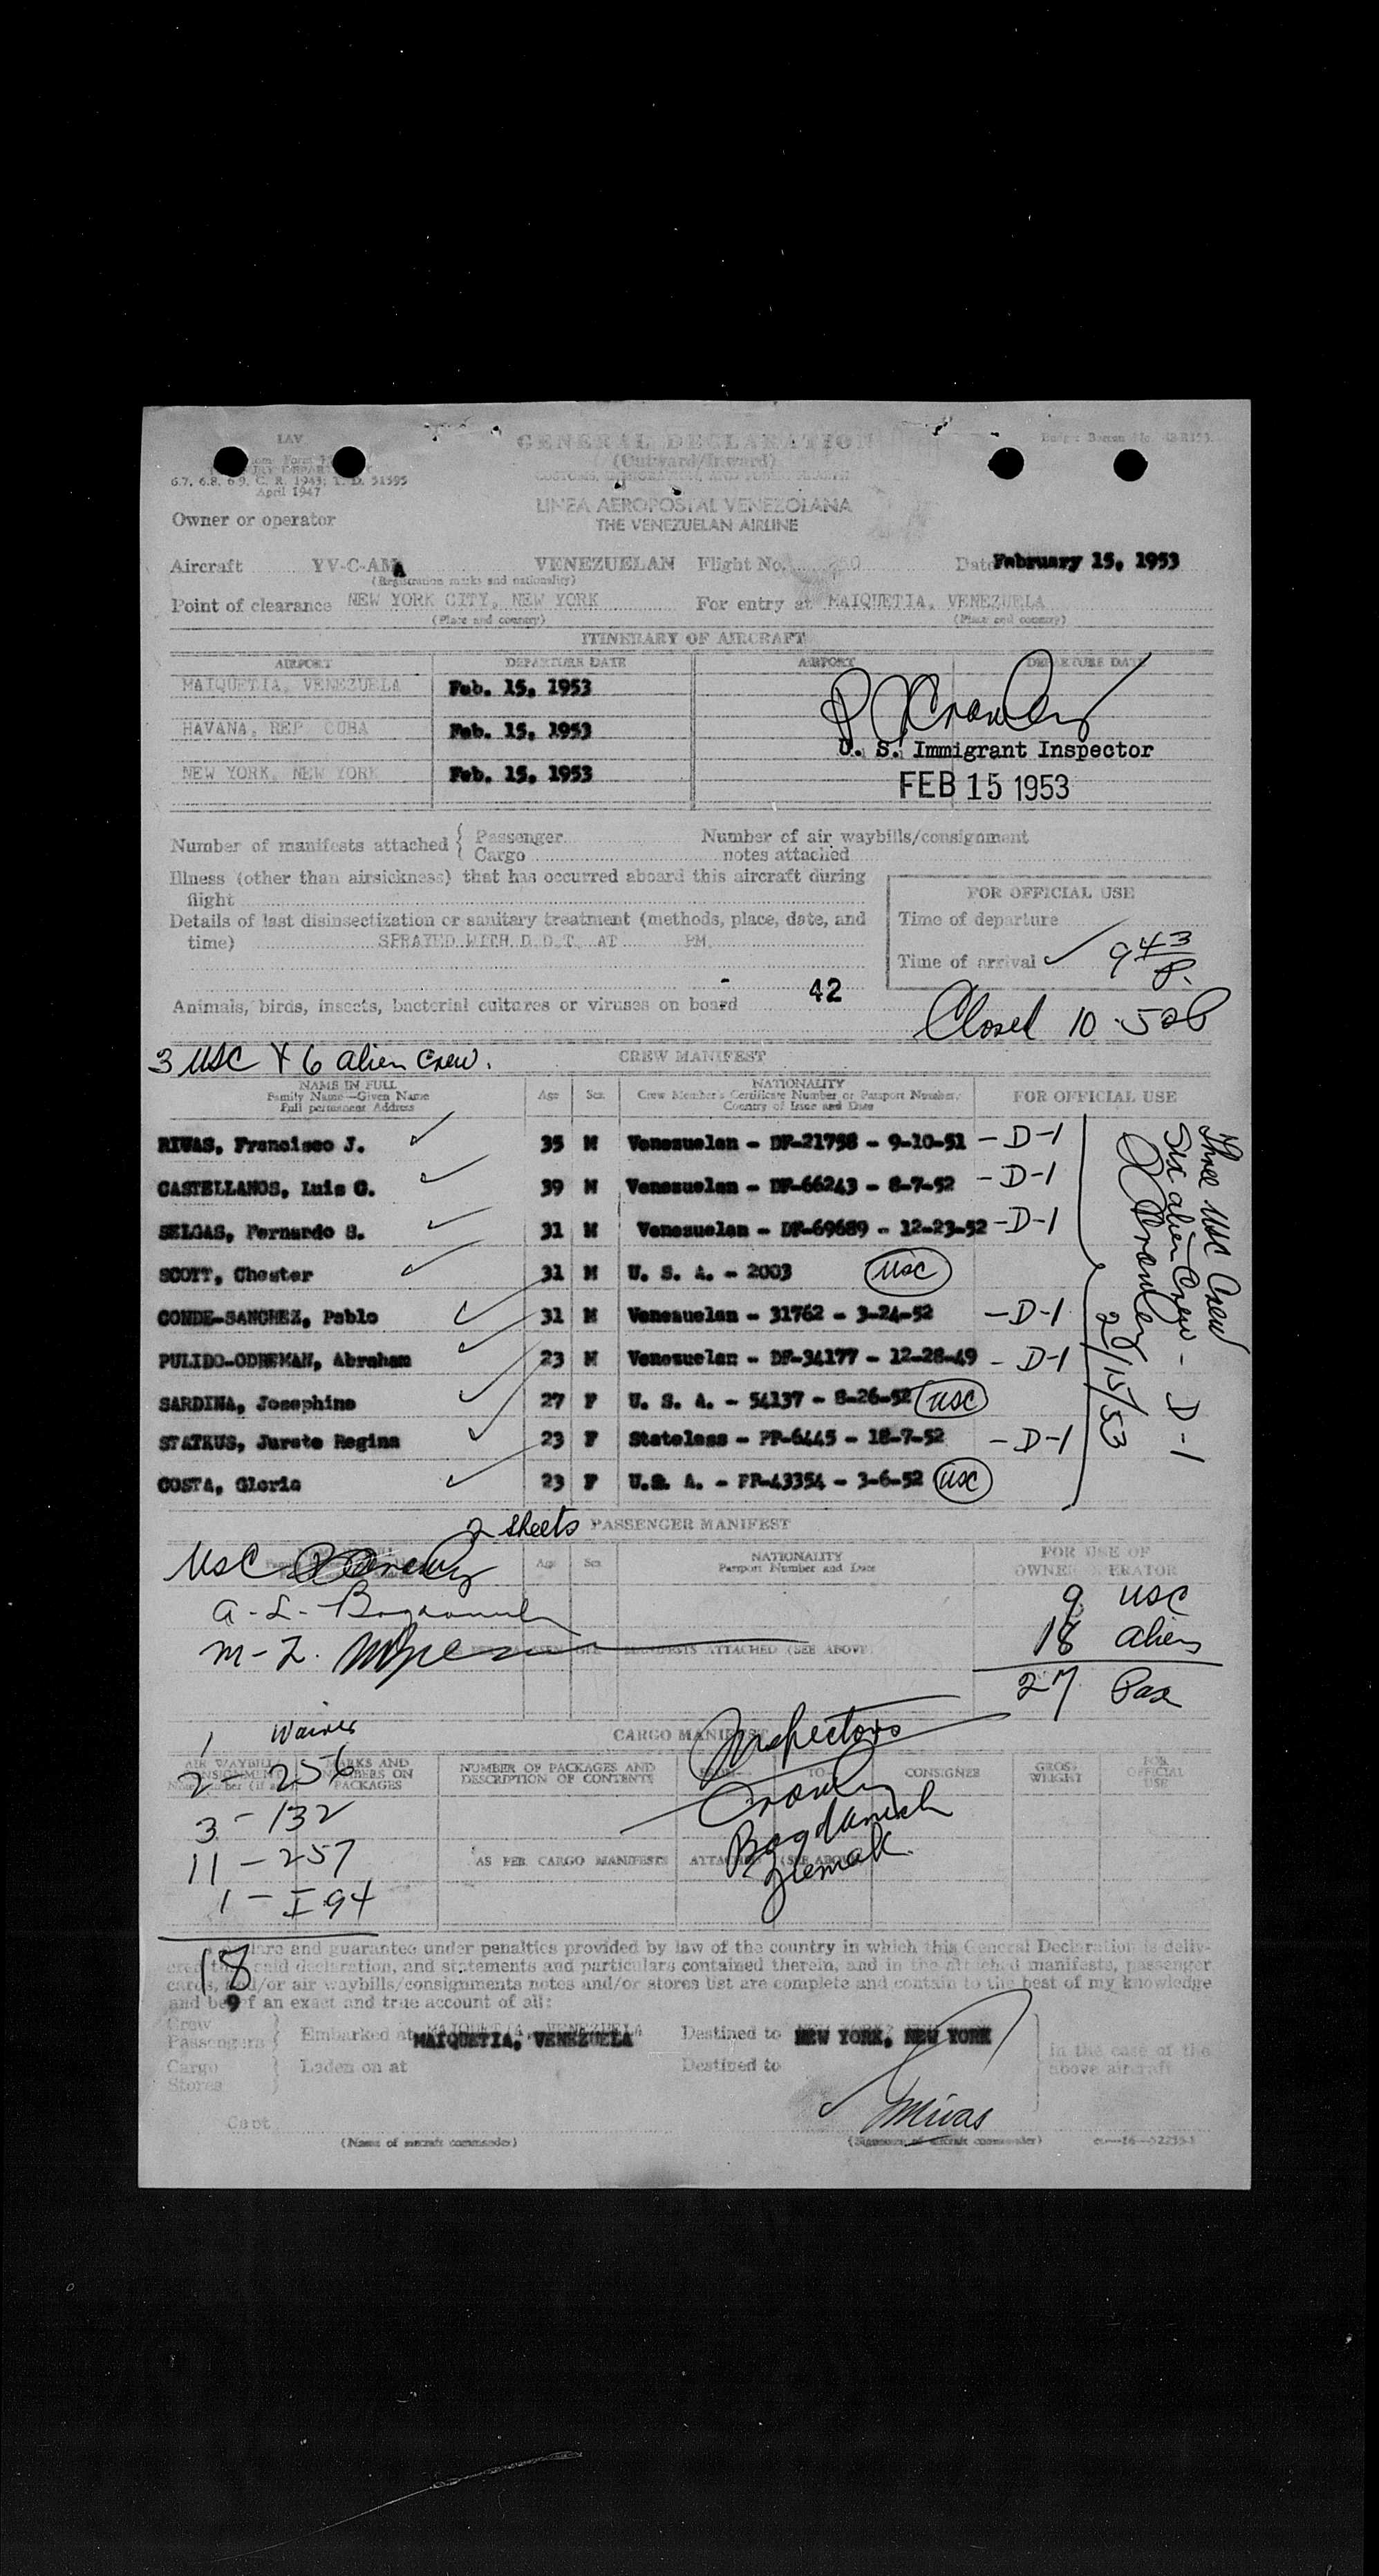 LAV
GENERAL DECLARATION
(Outward/Inward)
CUSTOMS, IMMIGRATION, AND PUBLIC HEALTH
6.7, 6.8, 6.9, C. R. 1943; T. D. 51595
April 1947
LINEA AEROPOSTAL VENEZOLANA
THE VENEZUELAN AIRLINE
Owner or operator
Aircraft YV-C-AMA VENEZUELAN Flight No. Date February 15, 1953
(Registration marks and nationality)
Point of clearance NEW YORK CITY, NEW YORK For entry at MAIQUETIA, VENEZUELA
(Place and country) (Place and country)
ITINERARY OF AIRCRAFT
AIRPORT DEPARTURE DATE AIRPORT DEPARTURE DATE
MAIQUETIA, VENEZUELA Feb. 15, 1953
HAVANA, REP CUBA Feb. 15, 1953
U. S. Immigrant Inspector
NEW YORK, NEW YORK Feb. 15, 1953
FEB 15 1953
Number of manifests attached { Passenger Number of air waybills/consignment
Cargo notes attached
Illness (other than airsickness) that has occurred aboard this aircraft during
flight
FOR OFFICIAL USE
Details of last disinsectization or sanitary treatment (methods, place, date, and
time) SPRAYED WITH D.D.T. AT PM
Time of departure
Time of arrival ✓ 9 43 P.
Animals, birds, insects, bacterial cultures or viruses on board 42
Closed 10.50P
3 USC + 6 alien crew.
CREW MANIFEST
NAMES IN FULL Age Sex NATIONALITY
Family Name—Given Name Crew Member's Certificate Number or Passport Number,
Full permanent Address Country of Issue and Date
FOR OFFICIAL USE
RIVAS, Francisco J. 35 M Venezuelan - DF-21758 - 9-10-51 - D-1
CASTELLANOS, Luis G. 39 M Venezuelan - DF-66243 - 8-7-52 - D-1
SELGAS, Fernando S. 31 M Venezuelan - DF-69689 - 12-23-52 - D-1
SCOTT, Chester 31 M U. S. A. - 2003 USC
CONDE-SANCHEZ, Pablo 31 M Venezuelan - 31762 - 3-24-52 - D-1
PULIDO-ODREMAN, Abraham 23 M Venezuelan - DF-34177 - 12-28-49 - D-1
SARDINA, Josephine 27 F U. S. A. - 54137 - 8-26-52 USC
STATKUS, Jurate Regina 23 F Stateless - PP-6445 - 18-7-52 - D-1
COSTA, Gloria 23 F U.S. A. - PP-43354 - 3-6-52 USC
Three USC Crew
Six alien Crew - D-1
Crowley 2/15/53
2 sheets PASSENGER MANIFEST
USC Crowley
Age Sex NATIONALITY
Passport Number and Date
FOR USE OF
OWNER OPERATOR
A-L- Bogdanich
M-Z.
MANIFESTS ATTACHED (SEE ABOVE)
9 USC
18 aliens
27 Pax
1 Waiver
CARGO MANIFEST
AIR WAYBILL MARKS AND
NUMBERS ON
PACKAGES
NUMBER OF PACKAGES AND
DESCRIPTION OF CONTENTS
FROM— TO— CONSIGNEE GROSS
WEIGHT FOR
OFFICIAL
USE
2 - 256
3 - 132
11 - 257
1 - I 94
18
9
Inspectors
Crowley
Bogdanich
Ziemak.
AS PER CARGO MANIFESTS ATTACHED (SEE ABOVE)
declare and guarantee under penalties provided by law of the country in which this General Declaration is deliv-
ered that said declaration, and statements and particulars contained therein, and in the attached manifests, passenger
cards, and/or air waybills/consignments notes and/or stores list are complete and contain to the best of my knowledge
and belief an exact and true account of all:
Crew
Passengers } Embarked at MAIQUETIA, VENEZUELA Destined to NEW YORK, NEW YORK
Cargo
Stores } Laden on at Destined to
in the case of the
above aircraft
Capt
(Name of aircraft commander) (Signature of aircraft commander)